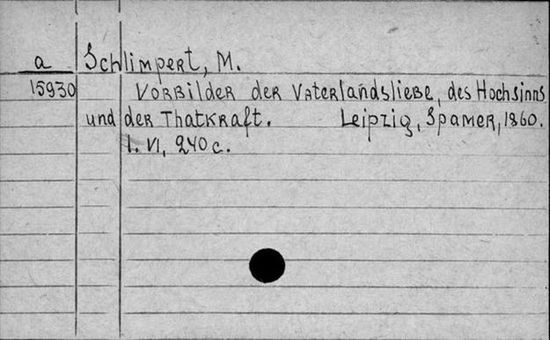 a Schlimpert, M.
15930 Vorbilder der Vaterlandsliebe, des Hochsinns
und der Thatkraft. Leipzig, Spamer, 1860.
1. VI, 240 c.